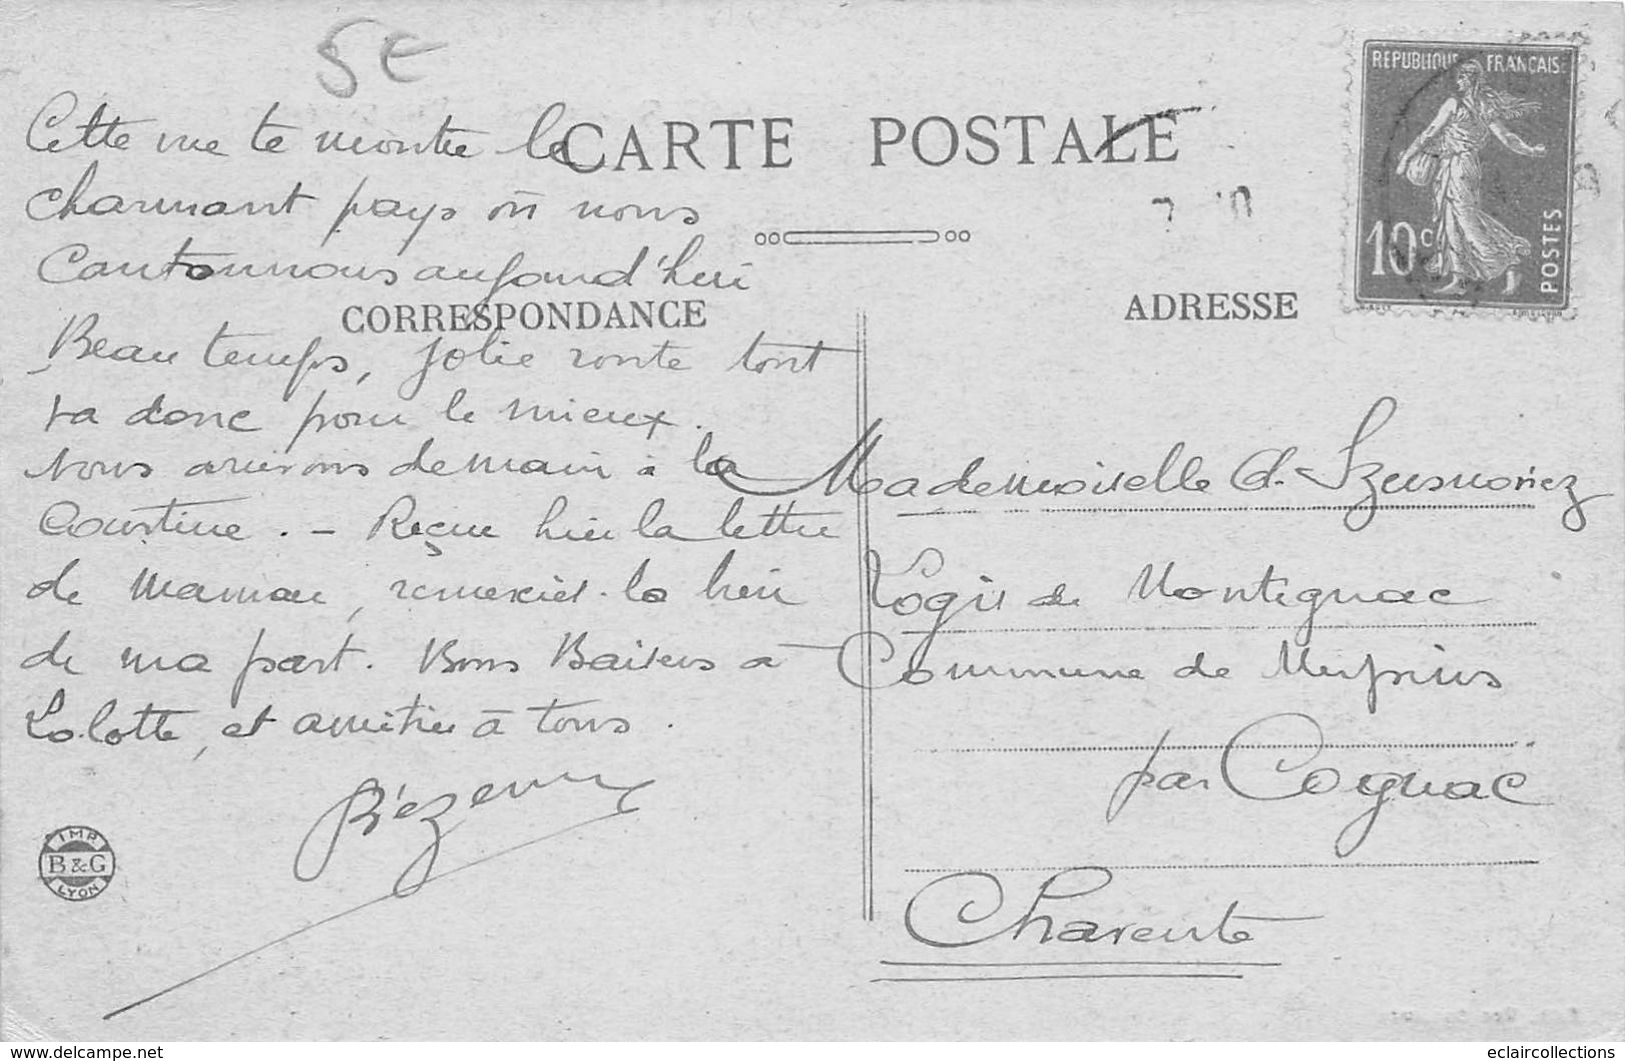 5€
Cette vue te montre le
CARTE POSTALE
charmant pays où nous
cantonnons aujourd'hui
CORRESPONDANCE
Beau temps, jolie route tout
va donc pour le mieux.
Nous arrivons demain à la
Courtine. - Reçue hier la lettre
de Maman, remerciez-la bien
de ma part. Bons Baisers à
Lolotte, et amitiés à tous.
IMP
B & G
LYON
REPUBLIQUE FRANÇAISE
10c
POSTES
ADRESSE
Mademoiselle
Logis de Montignac
Commune de
par Cognac
Charente
www.delcampe.net
eclaircollections